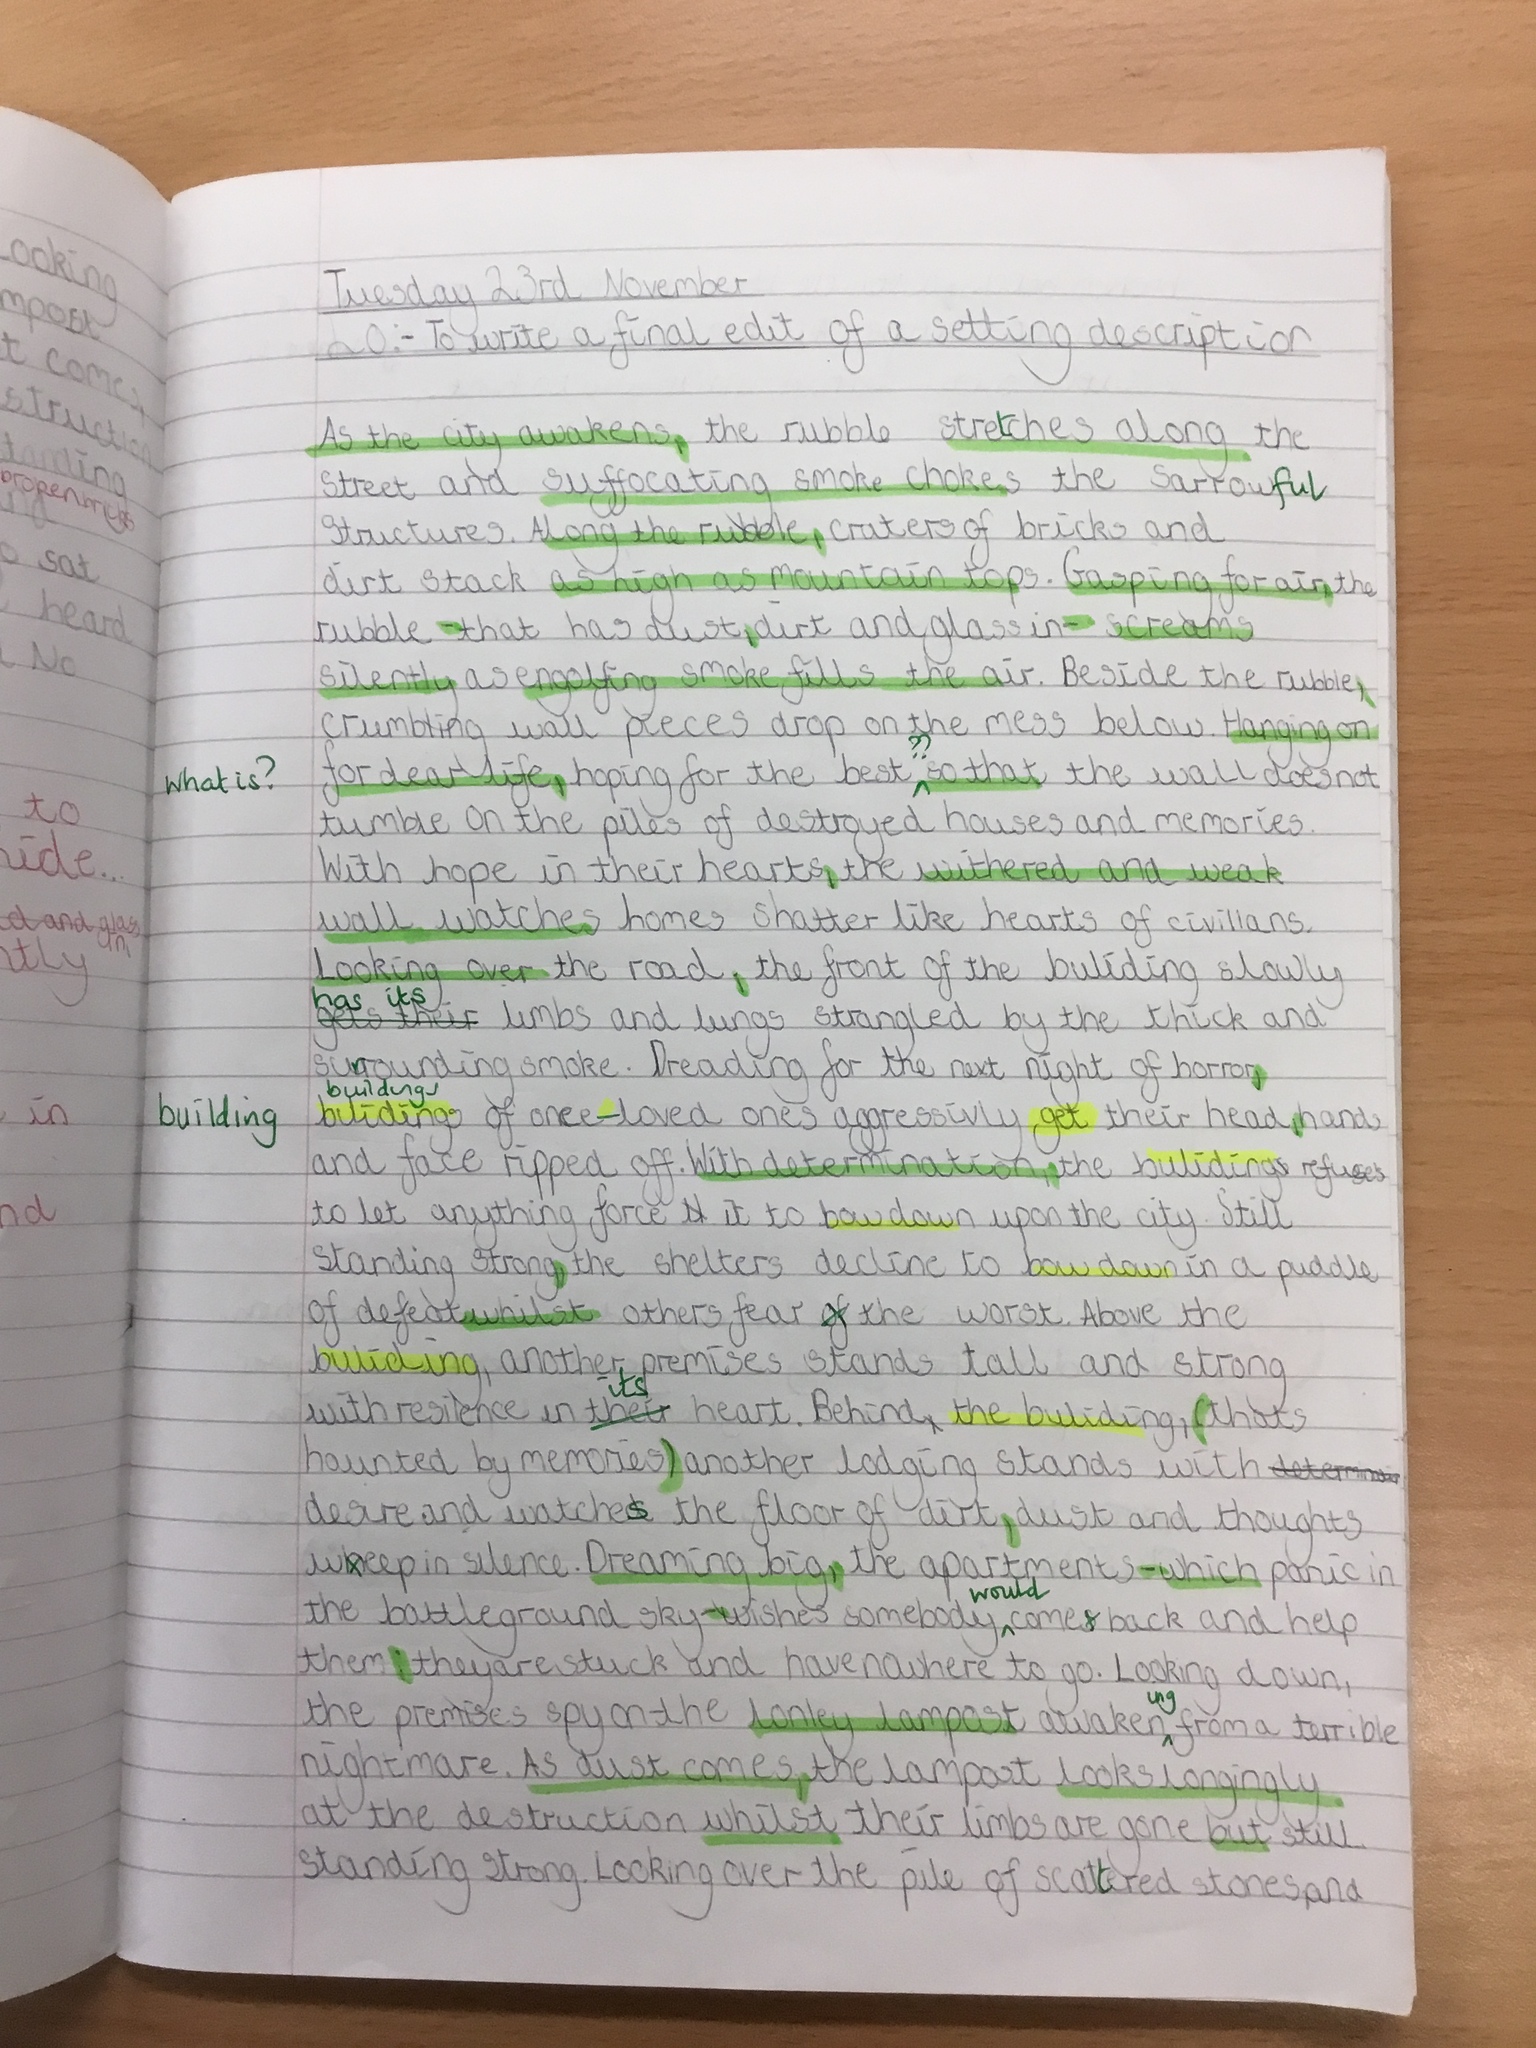 Tuesday 23rd November
LO:- To write a final edit of a setting description
As the city awakens, the rubble stretches along the
street and suffocating smoke chokes the sarrowful
structures. Along the rubble, craters of bricks and
dirt stack as high as mountain tops. Gasping for air, the
rubble - that has dust, dirt and glass in - screams
silently as engolfing smoke fills the air. Beside the rubble,
crumbling wall pieces drop on the mess below. Hanging on
??
what is? for dear life, hoping for the best so that the wall does not
tumble on the piles of destroyed houses and memories.
With hope in their hearts, the withered and weak
wall watches homes shatter like hearts of civilians.
Looking over the road, the front of the buliding slowly
has its
gets their limbs and lungs strangled by the thick and
surrounding smoke. Dreading for the next night of horror,
buildings
building bulidings of once-loved ones aggressivly get their head, hands
and face ripped off. With determination, the bulidings refuses
to let anything force it to bow down upon the city. Still
standing strong, the shelters decline to bow down in a puddle
of defeat whilst others fear of the worst. Above the
buliding, another premises stands tall and strong
its
with resilence in their heart. Behind, the buliding, (thats
haunted by memories) another lodging stands with
desire and watches the floor of dirt, dust and thoughts
weep in silence. Dreaming big, the apartments - which panic in
would
the battleground sky - wishes somebody comes back and help
them; they are stuck and have nowhere to go. Looking down,
ing
the premises spy on the lonley lampost awaken from a terrible
nightmare. As dust comes, the lampost looks longingly
at the destruction whilst their limbs are gone but still
standing strong. Looking over the pile of scattered stones and
Looking
mpost
t comes,
struction
tanding
sat
heard
No
to
hide...
ntly
in
nd